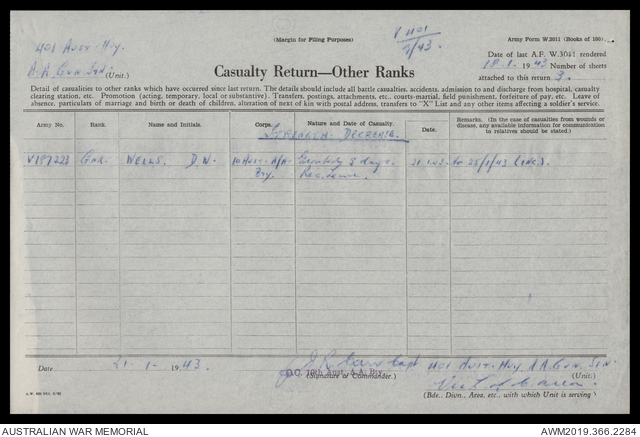 (Margin for Filing Purposes)
V 1101
1/43.
Army Form W.3011 (Books of 100).
401 Aust. Hvy.
A.A. Gun Stn. (Unit.)
Date of last A.F. W.3011 rendered
18. 1. 1943 Number of sheets
attached to this return 3.
Casualty Return—Other Ranks
Detail of casualties to other ranks which have occurred since last return. The details should include all battle casualties, accidents, admission to and discharge from hospital, casualty
clearing station, etc. Promotion (acting, temporary, local or substantive). Transfers, postings, attachments, etc., courts-martial, field punishment, forfeiture of pay, etc. Leave of
absence, particulars of marriage and birth or death of children, alteration of next of kin with postal address, transfers to "X" List and any other items affecting a soldier's service.
Army No. Rank. Name and Initials. Corps. Nature and Date of Casualty. Date. Remarks. (In the case of casualties from wounds or
disease, any available information for communication
to relatives should be stated.)
Strength Decrease.
V187223 Gnr. Wells, D.W. 10 Aust. A/A 8 days 21.1.43 to 28/1/43 (inc.).
Bty. Rec. Leave.
Date 21 - 1 - 1943. Capt 401 Aust. Hvy A.A. Gun. Stn.
O.C. 10th Aust. A.A. Bty. (Unit.)
(Signature of Commander.)
Vic L of C area.
(Bde., Divn., Area, etc., with which Unit is serving)
AUSTRALIAN WAR MEMORIAL
AWM2019.366.2284